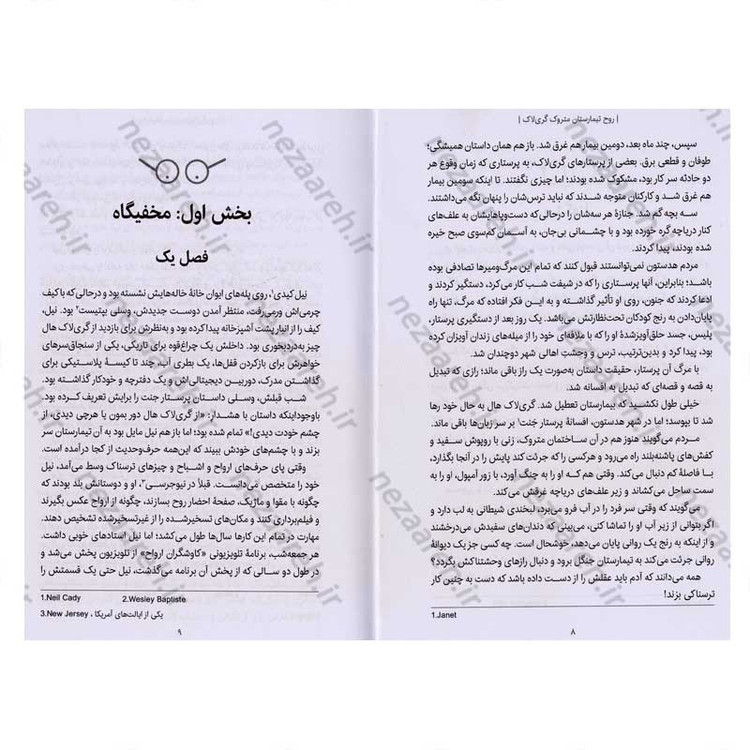 | روح تیمارستان متروک گری‌لاک |
سپس، چند ماه بعد، دومین بیمار هم غرق شد. بازهم همان داستان همیشگی؛
طوفان و قطعی برق. بعضی از پرستارهای گری‌لاک، به پرستاری که زمان وقوع هر
دو حادثه سر کار بود، مشکوک شده بودند؛ اما چیزی نگفتند. تا اینکه سومین بیمار
هم غرق شد و کارکنان متوجه شدند که نباید ترس‌شان را پنهان نگه می‌داشتند.
سه بچه گم شد. جنازهٔ هر سه‌شان را درحالی‌که دست‌وپاهایشان به علف‌های
کنار دریاچه گره خورده بود و با چشمانی بی‌جان، به آسمان کم‌سوی صبح خیره
شده بودند، پیدا کردند.
مردم هدستون نمی‌توانستند قبول کنند که تمام این مرگ‌ومیرها تصادفی بوده
باشد؛ بنابراین، آنها پرستاری را که در شیفت شب کار می‌کرد، دستگیر کردند و
ادعا کردند که جنون، روی او تأثیر گذاشته و به این فکر افتاده که مرگ، تنها راه
پایان‌دادن به رنج کودکان تحت‌نظارتش می‌باشد. یک روز بعد از دستگیری پرستار،
پلیس، جسد حلق‌آویزشدهٔ او را که با ملافه‌ای خود را از میله‌های زندان آویزان کرده
بود، پیدا کرد و بدین‌ترتیب، ترس و وحشتِ اهالی شهر دوچندان شد.
با مرگ آن پرستار، حقیقت داستان به‌صورت یک راز باقی ماند؛ رازی که تبدیل
به قصه و قصه‌ای که تبدیل به افسانه شد.
خیلی طول نکشید که بیمارستان تعطیل شد. گری‌لاک هال به حال خود رها
شد تا بپوسد؛ اما در شهر هدستون، افسانهٔ پرستار جَنِت¹ بر سر زبان‌ها باقی ماند.
مردم می‌گویند هنوز هم در آن ساختمان متروک، زنی با روپوش سفید و
کفش‌های پاشنه‌بلند راه می‌رود و هرکسی را که جرئت کند پایش را در آنجا بگذارد،
با فاصلهٔ کم دنبال می‌کند. وقتی هم که او را به چنگ آورد، با زور آمپول، او را به
سمت ساحل می‌کشاند و زیر علف‌های دریاچه غرقش می‌کند.
می‌گویند که وقتی سر فرد را در آب فرو می‌برد، لبخندی شیطانی به لب دارد و
اگر بتوانی از زیر آب او را تماشا کنی، می‌بینی که دندان‌های سفیدش می‌درخشند
و از اینکه به رنج یک روانی پایان می‌دهد، خوشحال است. چه کسی جز یک دیوانهٔ
روانی جرئت می‌کند به تیمارستان جنگل برود و دنبال رازهای وحشتناکش بگردد؟
همه می‌دانند که آدم باید عقلش را از دست داده باشد که دست به چنین کار
ترسناکی بزند!
1.Janet
۸
بخش اول: مخفیگاه
فصل یک
نیل کیدی¹، روی پله‌های ایوان خانهٔ خاله‌هایش نشسته بود و درحالی‌که با کیف
چرمی‌اش ورمی‌رفت، منتظر آمدن دوست جدیدش، وسلی بپتیست² بود. نیل،
کیف را از انبار پشت آشپزخانه پیدا کرده بود و به‌نظرش برای بازدید از گری‌لاک هال
چیز به‌دردبخوری بود. داخلش یک چراغ‌قوه برای تاریکی، یکی از سنجاق‌سرهای
خواهرش برای بازکردن قفل‌ها، یک بطری آب، چند تا کیسهٔ پلاستیکی برای
گذاشتن مدرک، دوربین دیجیتالی‌اش و یک دفترچه و خودکار گذاشته بود.
شب قبلش، وسلی داستان پرستار جنت را برایش تعریف کرده بود.
باوجوداینکه داستان با هشدار: «از گری‌لاک هال دور بمون یا هرچی دیدی، از
چشم خودت دیدی!» تمام شده بود؛ اما باز هم نیل مایل بود به آن تیمارستان سر
بزند و با چشم‌های خودش ببیند که این‌همه حرف‌وحدیث از کجا درآمده است.
وقتی پای حرف‌های ارواح و اشباح و چیزهای ترسناک وسط می‌آمد، نیل
خود را متخصص می‌دانست. قبلاً در نیوجرسی³، او و دوستانش بلد بودند که
چگونه با مقوا و ماژیک، صفحهٔ احضار روح بسازند، چگونه از ارواح عکس بگیرند
و فیلم‌برداری کنند و مکان‌های تسخیرشده را از غیرتسخیرشده تشخیص دهند.
مهارت در تمام این کارها سال‌ها طول می‌کشد؛ اما نیل استادهای خوبی داشت.
هر جمعه‌شب، برنامهٔ تلویزیونی «کاوشگران ارواح» از تلویزیون پخش می‌شد و
در طول دو سالی که از پخش آن برنامه می‌گذشت، نیل حتی یک قسمتش را
1.Neil Cady 2.Wesley Baptiste
3.New Jersey ، یکی از ایالت‌های آمریکا
۹
nezaareh.ir